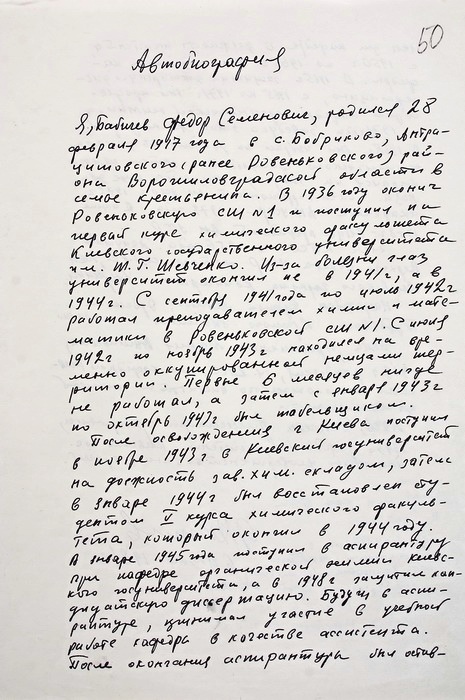 50
Автобиография
Я, Бабичев Федор Семенович, родился 28
февраля 1917 года в с. Бобриково, Антра-
цитовского (ранее Ровеньковского) рай-
она Ворошиловградской области в
семье крестьянина. В 1936 году окончил
Ровеньковскую СШ №1 и поступил на
первый курс химического факультета
Киевского государственного университета
им. Т. Г. Шевченко. Из-за болезни глаз
университет окончил не в 1941 г, а в
1944 г. С сентября 1941 года по июль 1942 г
работал преподавателем химии и мате-
матики в Ровеньковской СШ №1. С июля
1942 г по ноябрь 1943 г находился на вре-
менно оккупированной немцами тер-
ритории. Первые 6 месяцев нигде
не работал, а затем с января 1943 г
по октябрь 1943 г был табельщиком.
После освобождения г Киева поступил
в ноябре 1943 г в Киевский госуниверситет
на должность зав. хим. складом, затем
в январе 1944 г был восстановлен сту-
дентом V курса химического факуль-
тета, который окончил в 1944 году.
В январе 1945 года поступил в аспирантуру
при кафедре органической химии Киевс-
кого госуниверситета, а в 1948 г защитил кан-
дидатскую диссертацию. Будучи в аспи-
рантуре, принимал участие в учебной
работе кафедры в качестве ассистента.
После окончания аспирантуры был остав-